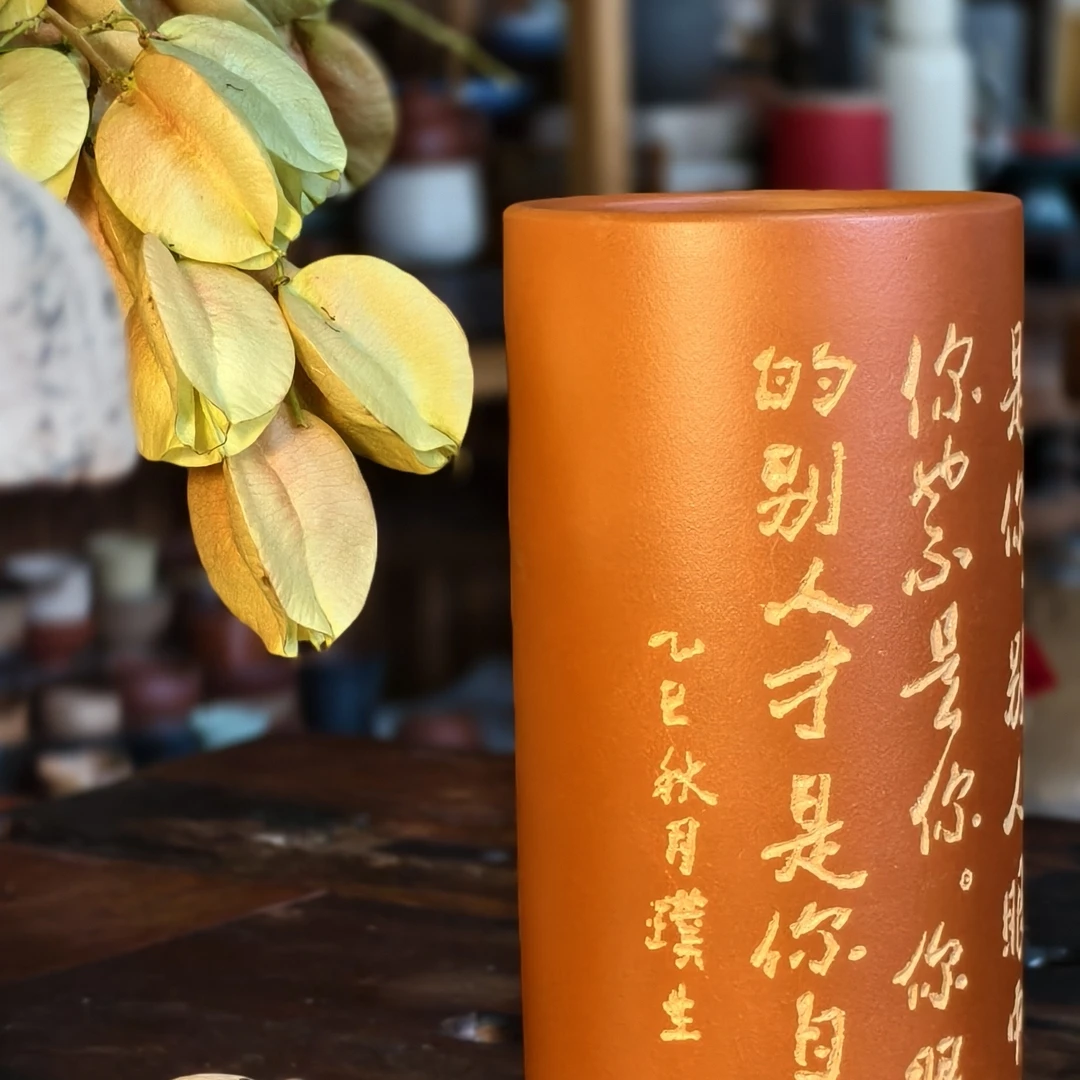 是你，别人眼中
你也不是你。你眼
的别人才是你自
乙巳秋月璞生